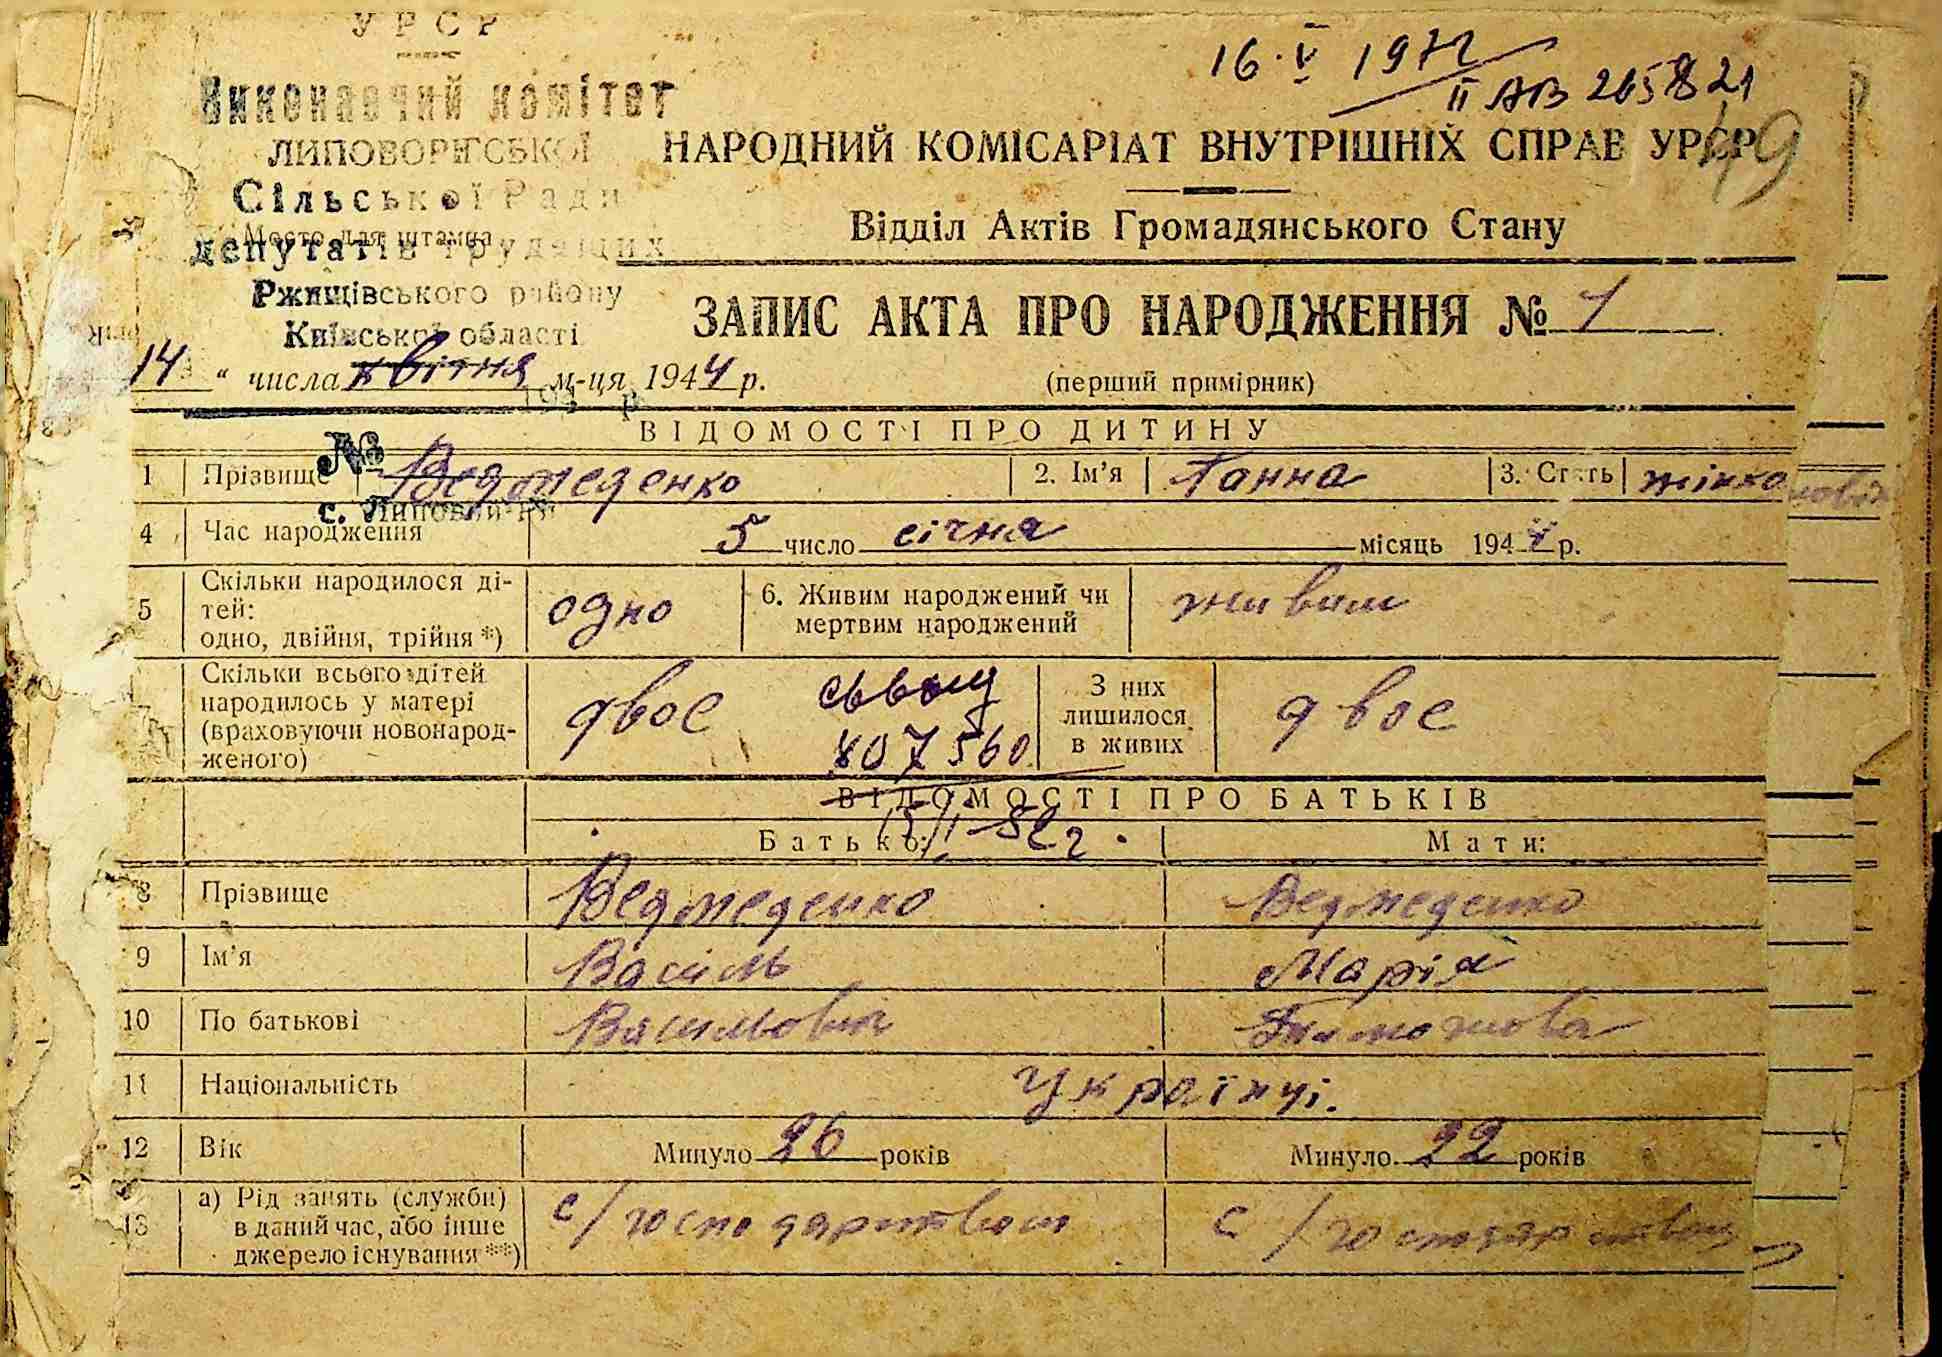 УРСР
Виконавчий комітет
ЛИПОВОРІГСЬКОЇ
Сільської Ради
Место для штампа
депутатів трудящих
Ржищівського району
Київської області
16·V 1972
II АВ 265821
49
НАРОДНИЙ КОМІСАРІАТ ВНУТРІШНІХ СПРАВ УРСР
Відділ Актів Громадянського Стану
ЗАПИС АКТА ПРО НАРОДЖЕННЯ № 1
14 " числа квітня м-ця 1944 р.
(перший примірник)
№
с.
ВІДОМОСТІ ПРО ДИТИНУ
1 Прізвище Ведмеденко 2. Ім'я Ганна 3. Стать жіноча
4 Час народження 5 число січня місяць 1944 р.
5 Скільки народилося ді-
тей:
одно, двійня, трійня*) одно 6. Живим народжений чи
мертвим народжений живим
Скільки всього дітей
народилось у матері
(враховуючи новонарод-
женого) двоє З них
лишилося
в живих двоє
807560
ВІДОМОСТІ ПРО БАТЬКІВ
Батько: Мати:
8 Прізвище Ведмеденко Ведмеденко
9 Ім'я Василь Марія
10 По батькові Васильович Тимофіївна
11 Національність Українці.
12 Вік Минуло 26 років Минуло 22 років
13 а) Рід занять (служби)
в даний час, або інше
джерело існування**) с/господарством с/господарством